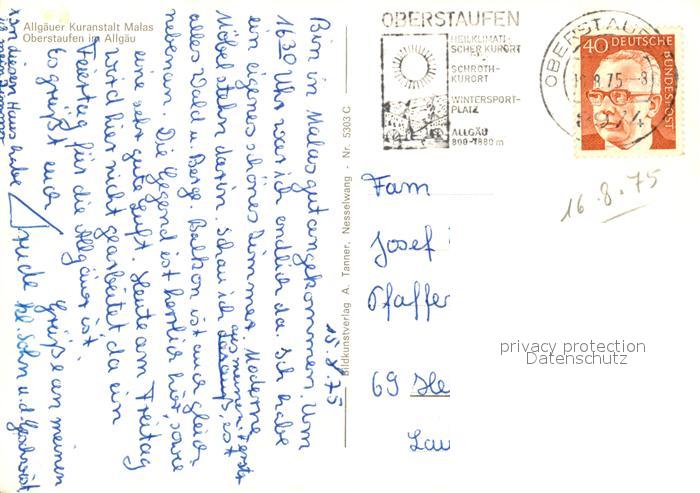 Allgäuer Kuranstalt Malas
Oberstaufen im Allgäu
15.8.75
Bin in Malas gut angekommen. Um
16³⁰ Uhr war ich endlich da. Ich habe
ein eigenes schönes Zimmer. Moderne
Möbel stehen darin. Schau ich aus meinem Fenster
alles Wald u. Berge. Balkon ist auch gleich
nebenan. Die Gegend ist herrlich hier, sowie
eine sehr gute Luft. Heute am Freitag
wird hier nicht gearbeitet da ein
Feiertag für die Allgäuer ist.
Es grüßt euch
Trude
Grüße an meinen
kl. Sohn u. d.
in diesem Haus habe
ich mein Zimmer
Bildkunstverlag A. Tanner, Nesselwang - Nr. 5303 C
OBERSTAUFEN
HEILKLIMATI-
SCHER KURORT
SCHROTH-
KURORT
WINTERSPORT-
PLATZ
ALLGÄU
800-1880 m
OBERSTAUFEN
8.75-8
8974
40 DEUTSCHE
BUNDESPOST
16.8.75
Fam
Josef
Pfaffe
69 He
Lau
privacy protection
Datenschutz